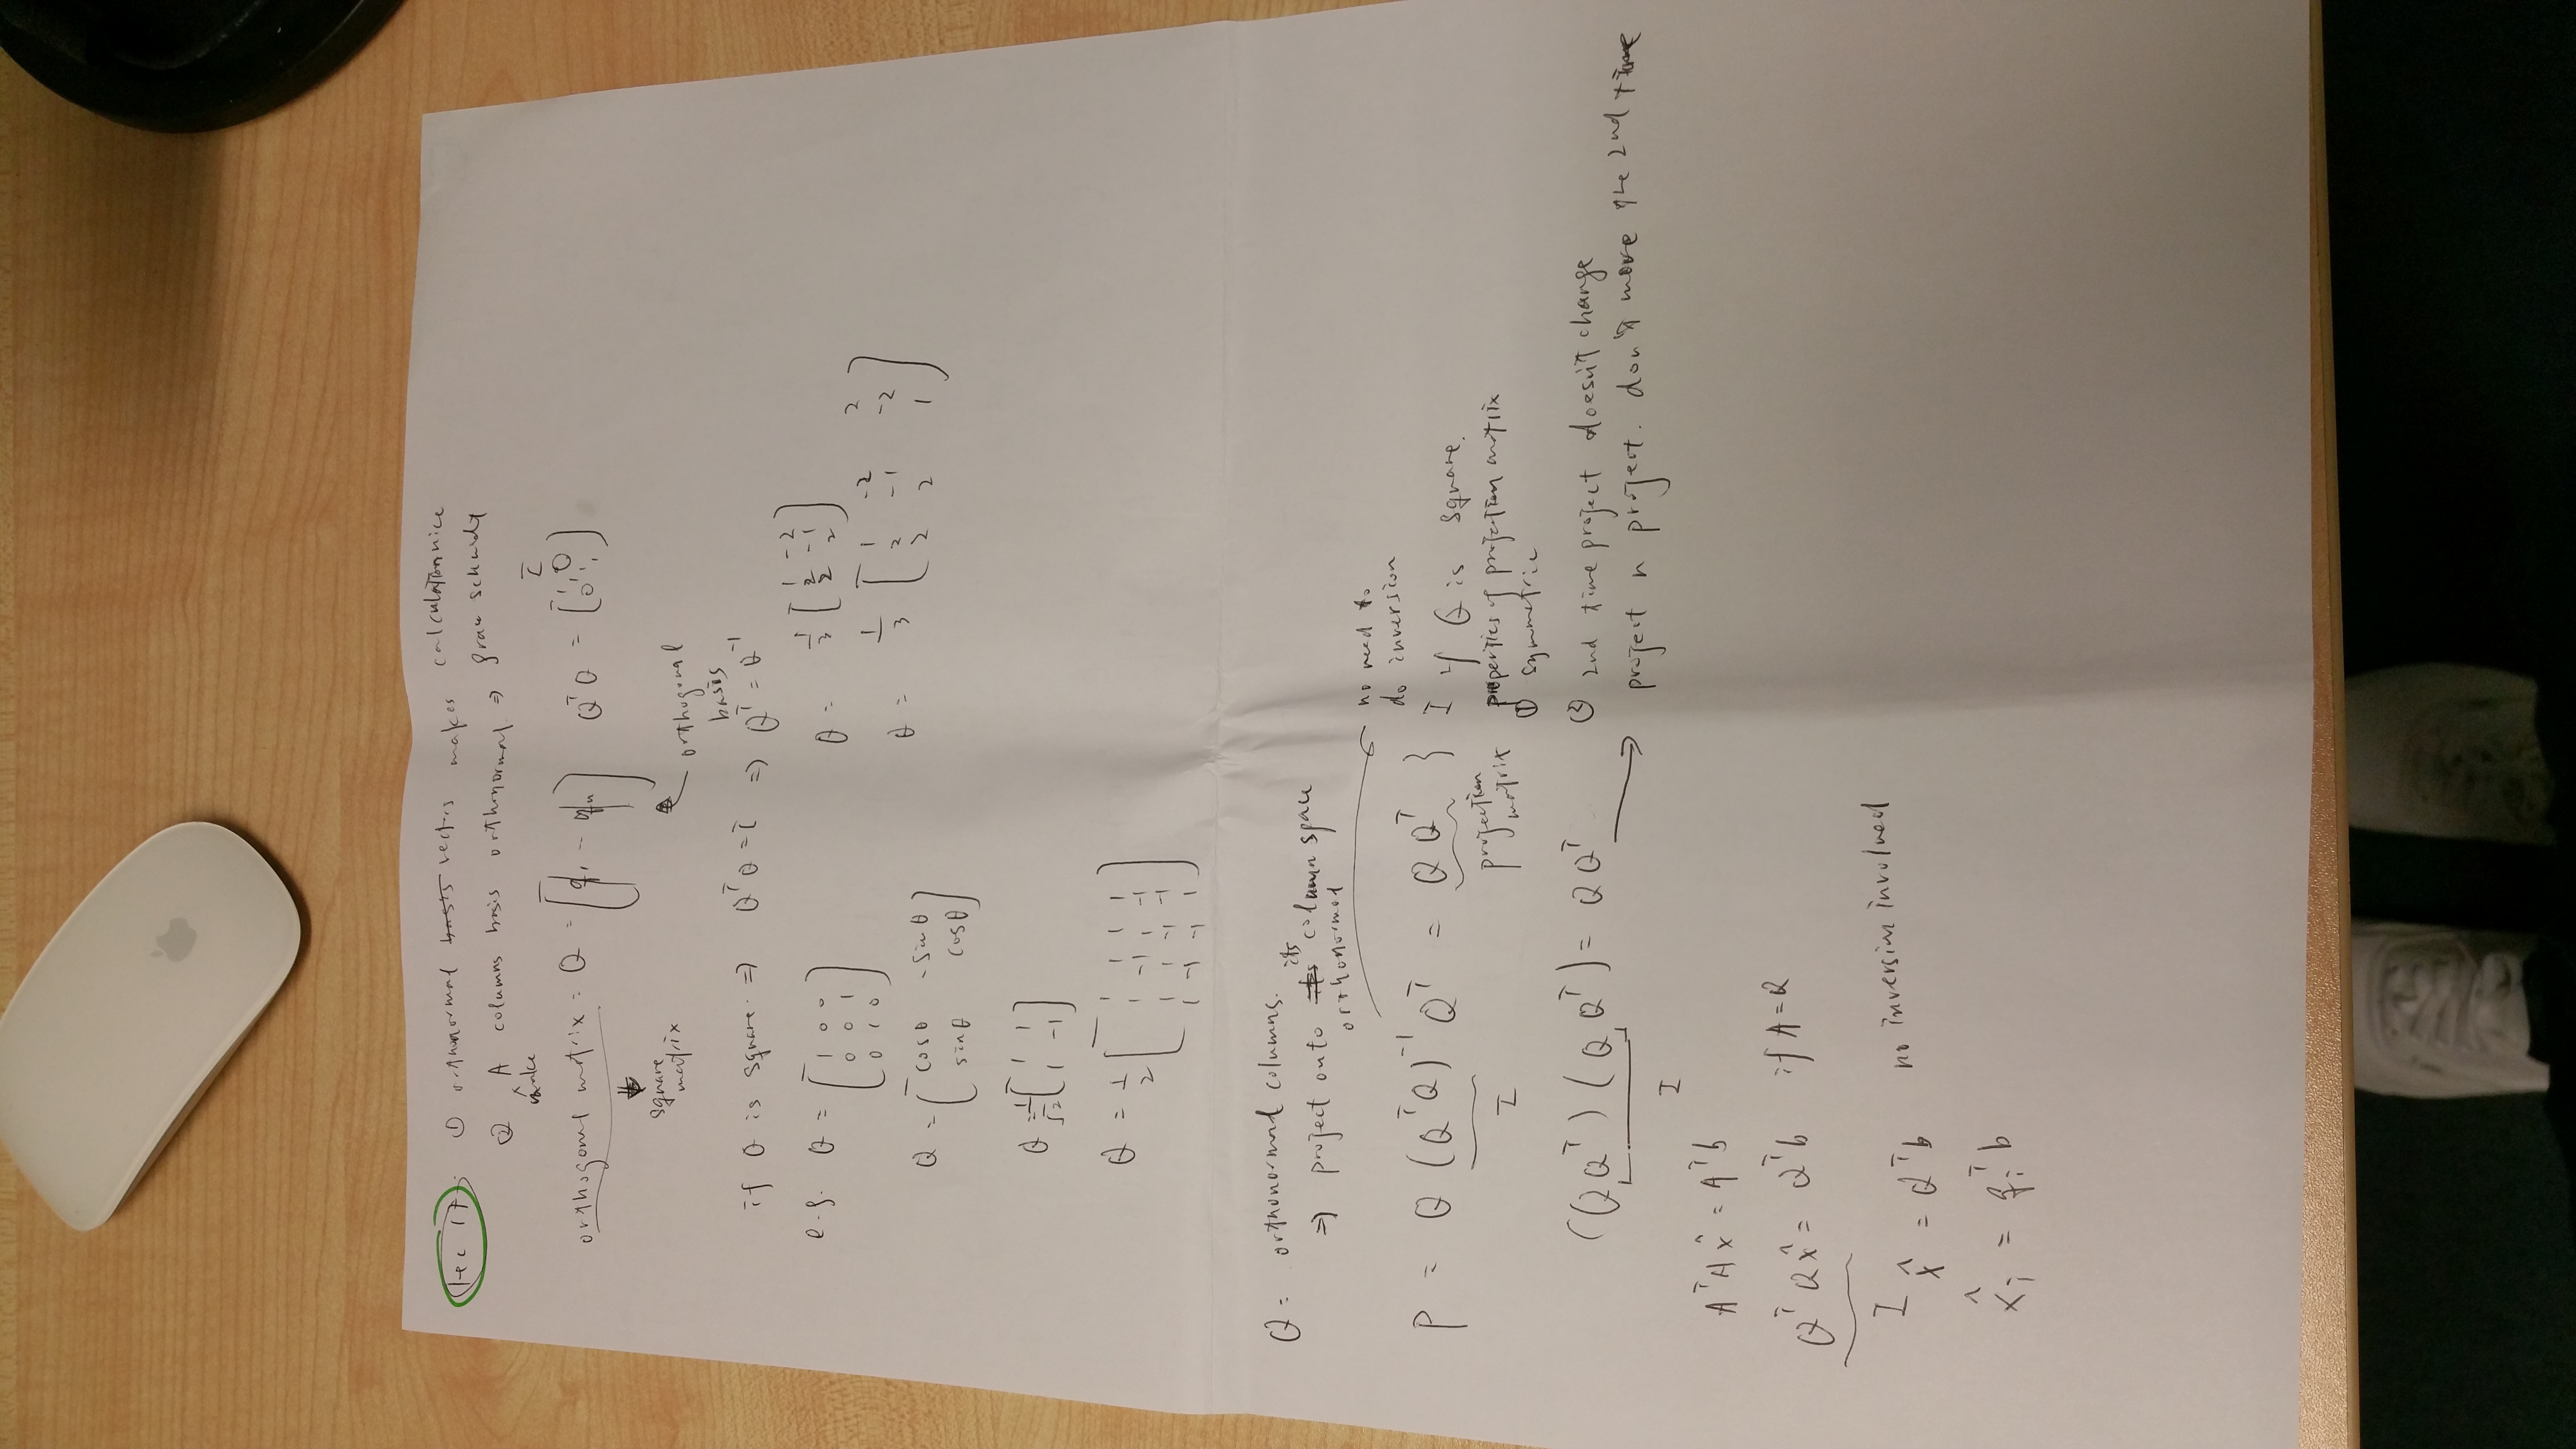 lec 17: ① orthonormal basis vectors makes calculation nice
② A columns basis orthonormal ⇒ gram schmidt
make
orthogonal matrix = Q = [q₁ -- qₙ] QᵀQ = [1 1 0 0 1 1] I
square matrix
orthogonal basis
if Q is square ⇒ QᵀQ = I ⇒ Qᵀ = Q⁻¹
e.g. Q = [1 0 0; 0 0 1; 0 1 0]
Q = 1/3 [1 -2; 2 -1; 2 2]
Q = 1/3 [1 -2 2; 2 -1 -2; 2 2 1]
Q = [cosθ -sinθ; sinθ cosθ]
Q = 1/√2 [1 1; 1 -1]
Q = 1/2 [1 1 1 1; 1 -1 1 -1; 1 1 -1 -1; 1 -1 -1 1]
Q = orthonormal columns.
⇒ project onto its column space
orthonormal
no need to
do inversion
P = Q (QᵀQ)⁻¹ Qᵀ = Q Qᵀ } I if Q is square.
I
projection matrix
properties of projection matrix
① symmetric
(QQᵀ)(QQᵀ) = QQᵀ
I
② 2nd time project doesn't change
project n project. don't move the 2nd time
AᵀA x̂ = Aᵀb
QᵀQ x̂ = Qᵀb if A = Q
I
x̂ = Qᵀb no inversion involved
x̂ᵢ = qᵢᵀb